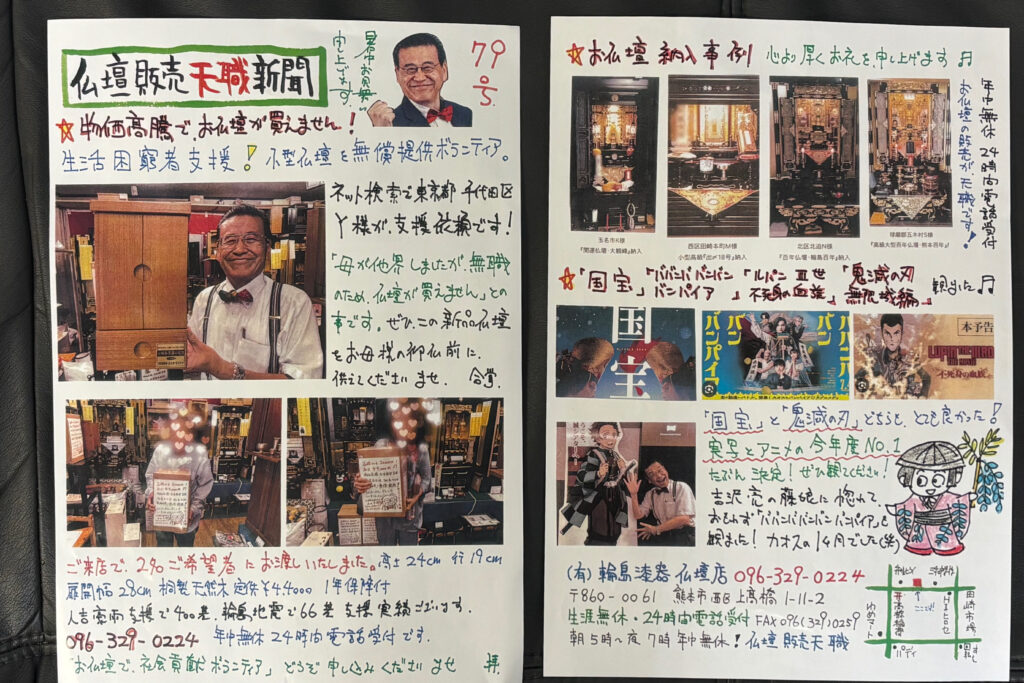 仏壇販売天職新聞
暑中お見舞い
申し上げます。
79
号。
☆物価高騰でお仏壇が買えません!
生活困窮者支援!小型仏壇を無償提供ボランティア。
ネット検索で東京都千代田区
Y様が、支援依頼です!
「母が他界しましたが、無職
のため、仏壇が買えません」との
事です。ぜひ、この新品仏壇
をお母様の御仏前に、
供えてくださいませ。合掌。
ご来店で、2名ご希望者にお渡しいたしました。高さ24cm 行19cm
扉開幅28cm 桐製天然木 定価¥44000 1年保障付
人吉豪雨支援で400基、輪島地震で66基 支援実績ございます。
096-329-0224 年中無休24時間電話受付です。
「お仏壇で、社会貢献ボランティア」どうぞ申し込みくださいませ 拝.
☆お仏壇納入事例 心より厚くお礼を申し上げます♫
年中無休24時間電話受付
お仏壇の販売が天職です!
玉名市K様
『開運仏壇・大観峰』納入
西区田崎本町M様
小型高級『出〆18号』納入
北区北迫N様
『百年仏壇・輪島百年』納入
球磨郡五木村S様
『高級大型百年仏壇・熊本百年』
☆「国宝」「ババンババンバン
バンパイア」「ルパン三世
不死身の血族」「鬼滅の刃
無限城編」観ました♫
国宝
ババンババンバンバンパイア
本予告
不死身の血族
「国宝」と「鬼滅の刃」どちらも、とても良かった!
実写とアニメの今年度No.1
たぶん決定!ぜひ観てください!
吉沢亮の藤娘に惚れて、
おもわず「ババンババンバンバンパイア」も
観ました!カオスの1ヶ月でした(笑)
(有)輪島漆器仏壇店 096-329-0224
〒860-0061 熊本市西区上高橋1-11-2
生涯無休・24時間電話受付 FAX096(329)0259
朝5時~夜7時年中無休!仏壇販売天職
ココ
高橋稲荷
ゆめマート
田崎市場